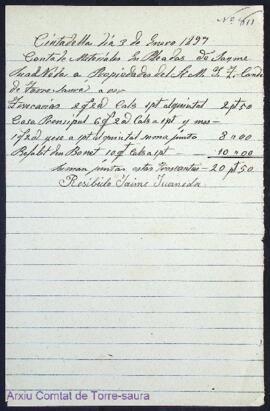 Nº 611
Ciutadella Dia 3 de Enero 1897
Conta de Materiales En Pleadas de Jayme
Juad Nota a Propiedades del S. M. I. I. Conde
de Torre Saura a ser
Ferecarias 2 q 2 a Cals 1 pt alquintal 2 pt 50
Casa Prencipul 6 q 2 a Cals a 1 pt y mes -
10 q yeso a pt alquintal soma junto 8 " 00
Refal den Bonet 10 q t Cals a 1 pt - 10 " 00
Suman juntas estas Trescantas - 20 pt 50
Resibido Jaime Juaneda
Arxiu Comtat de Torre-saura